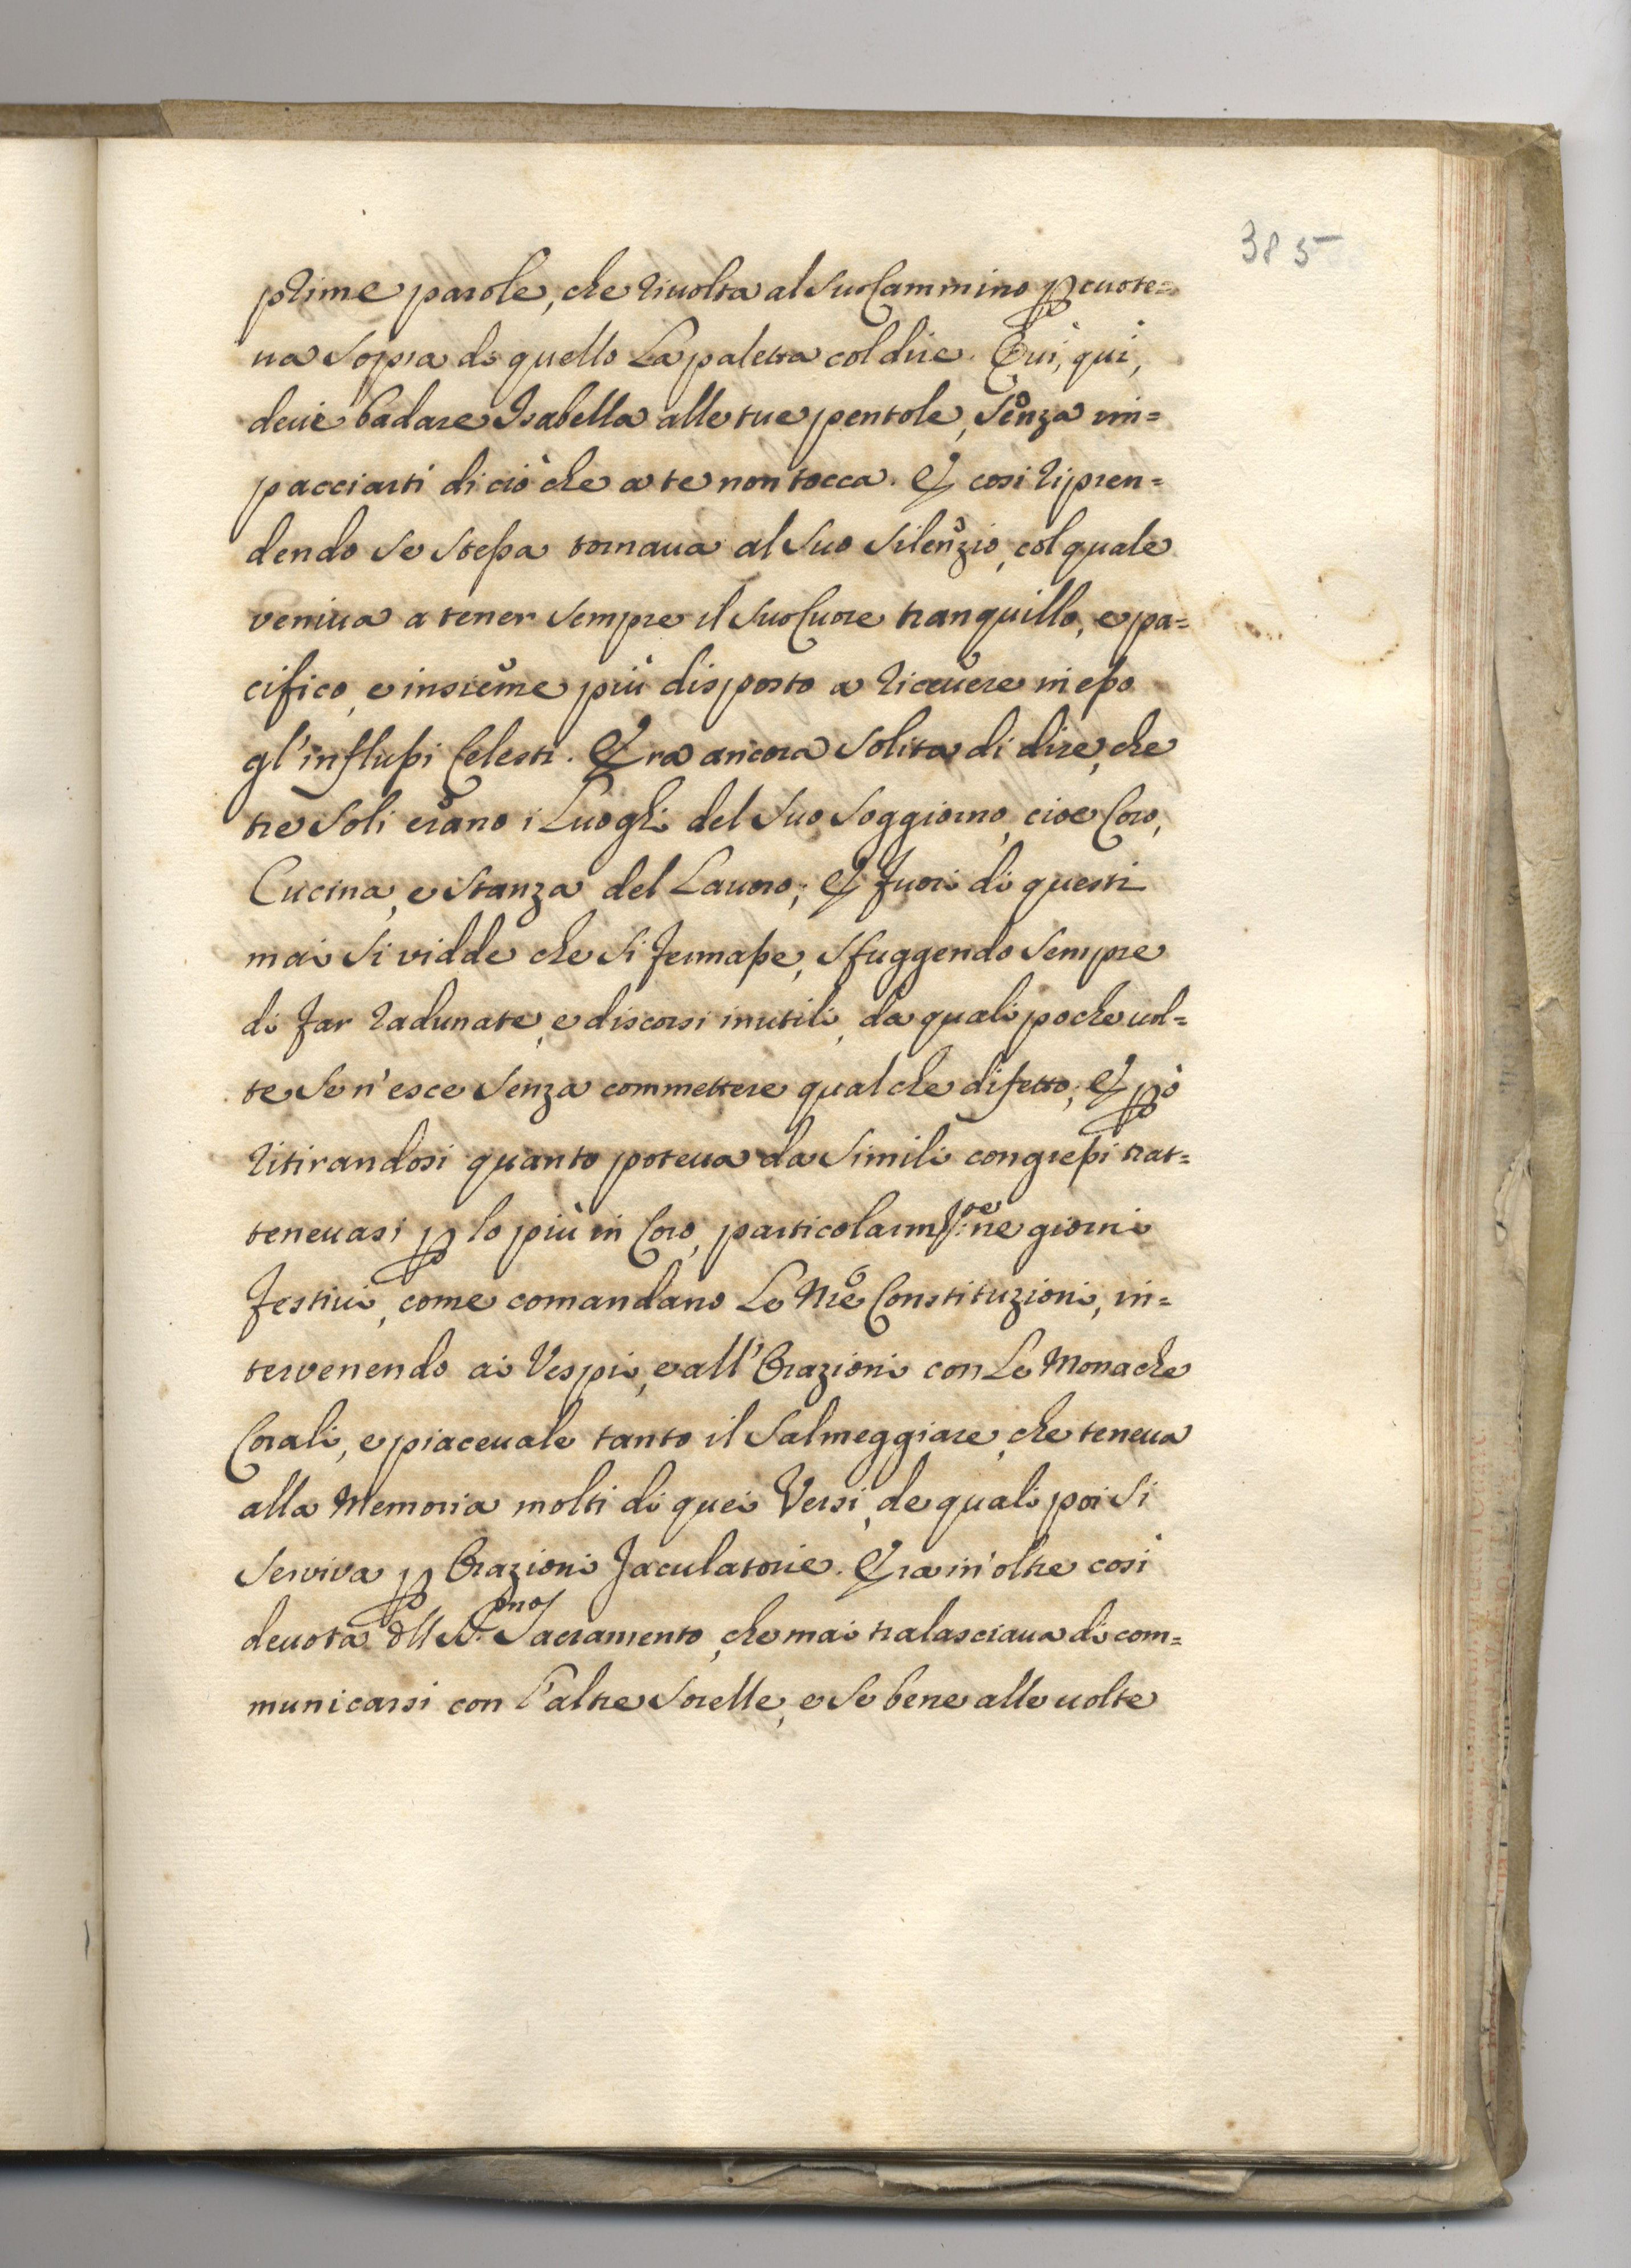 385
prime parole, che riuolta al suo Cammino ꝑcuote=
ua sopra di quello La paletta col dire. Qui, qui,
deui badare Isabella alle tue pentole, senza im=
pacciarti di ciò che a te non tocca. E cosi ripren=
dendo se stessa tornaua al suo silenzio, col quale
veniua a tener sempre il suo Cuore tranquillo, e pa=
cifico, e insieme più disposto a riceuere in esso
gl'influssi Celesti. Era ancora solita di dire, che
tre soli erano i Luoghi del suo soggiorno, cioe Coro,
Cucina, e stanza del Lauoro; E fuori di questi
mai si vidde che si fermasse, sfuggendo sempre
di far radunate, e discorsi inutili, da quali poche uol=
te se n'esce senza commettere qualche difetto; E ꝑò
ritirandosi quanto poteua da simili congressi trat=
teneuasi ꝑ lo più in Coro, particolarm:te ne giorni
festiui, come comandano Le nre Constituzioni, in=
tervenendo ai Vespri, e all'Orazioni con Le Monache
Corali, e piaceuale tanto il salmeggiare, che teneua
alla Memoria molti di quei Versi, de quali poi si
serviva ꝑ Orazioni Jaculatorie. Era in'oltre cosi
deuota dll SS.mo Sacramento, che mai tralasciaua di com=
municarsi con l'altre sorelle, e se bene alle uolte